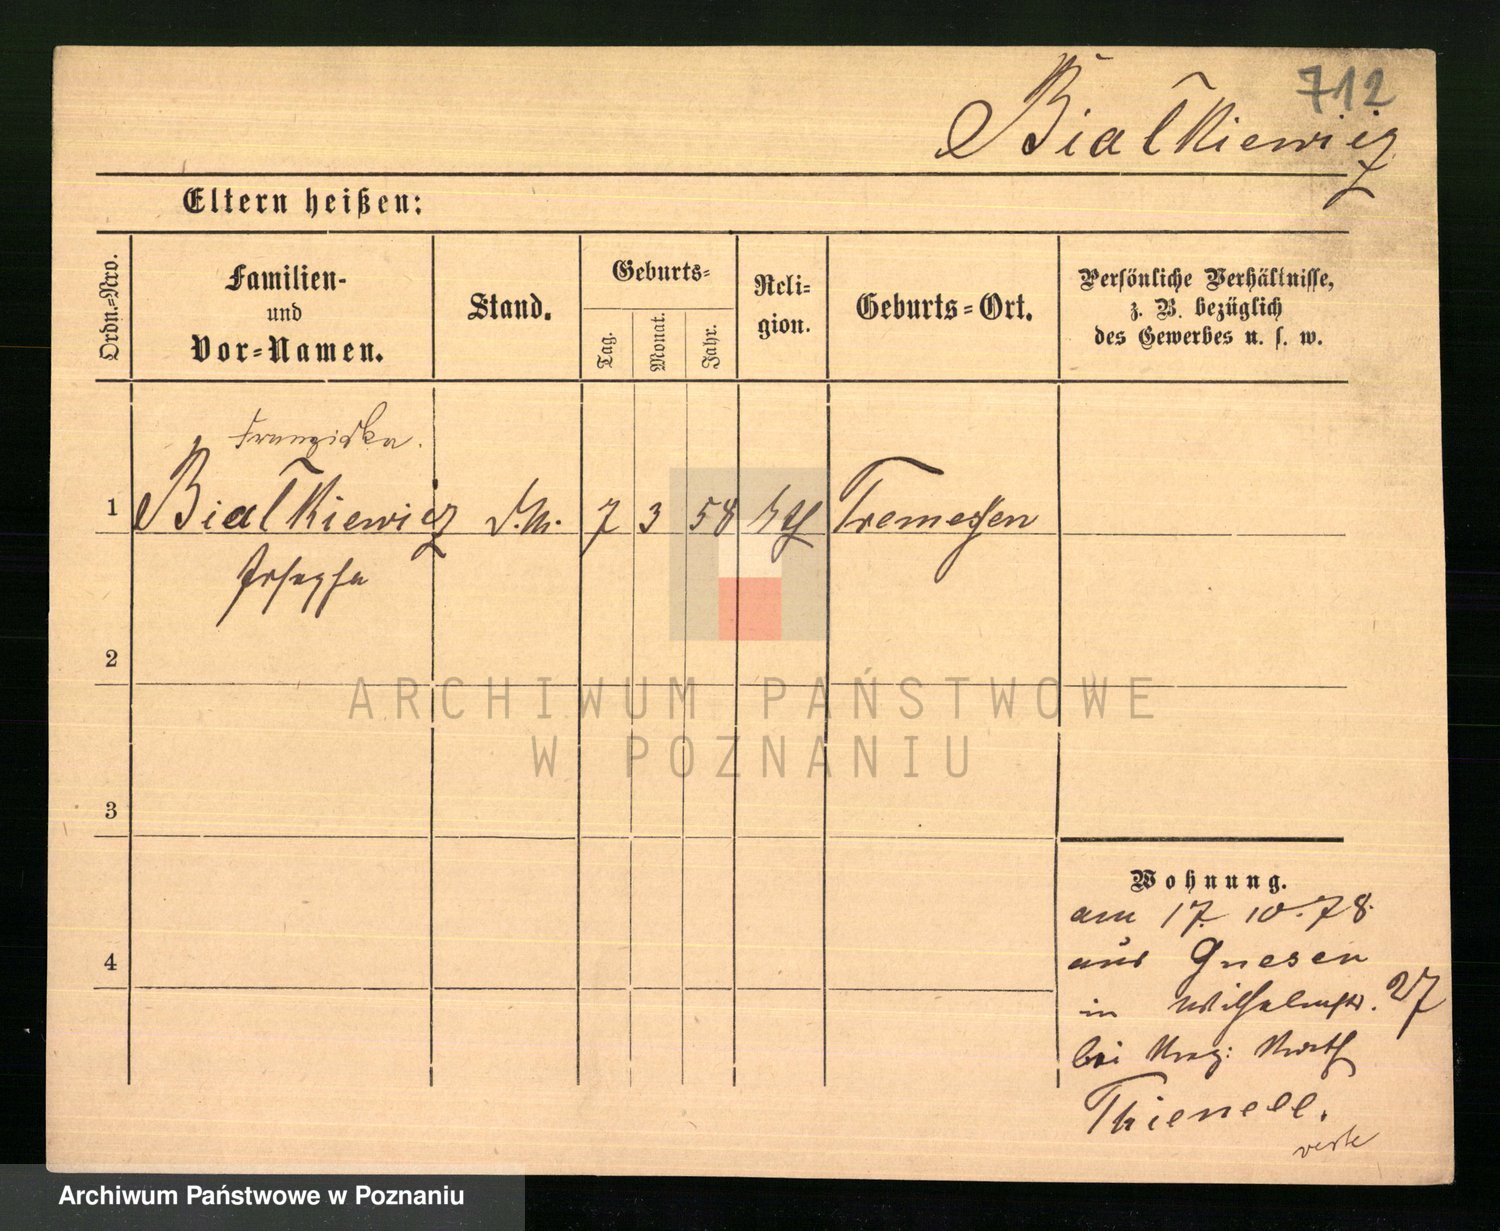 712
Białkiewicz
Eltern heißen:
Ordn.=Nro.
Familien-
und
Vor=Namen.
Stand.
Geburts=
Tag.
Monat.
Jahr.
Reli=
gion.
Geburts=Ort.
Persönliche Verhältnisse,
z. B. bezüglich
des Gewerbes u. s. w.
Franziska.
1 Białkiewicz D.M. 7 3 58 kth Tremessen
Josepha
2
ARCHIWUM PAŃSTWOWE
W POZNANIU
3
Wohnung.
am 17. 10. 78.
aus Gnesen
4
in Wilhelmstr. 27
bei Reg: Rath
Thienell.
verte
Archiwum Państwowe w Poznaniu